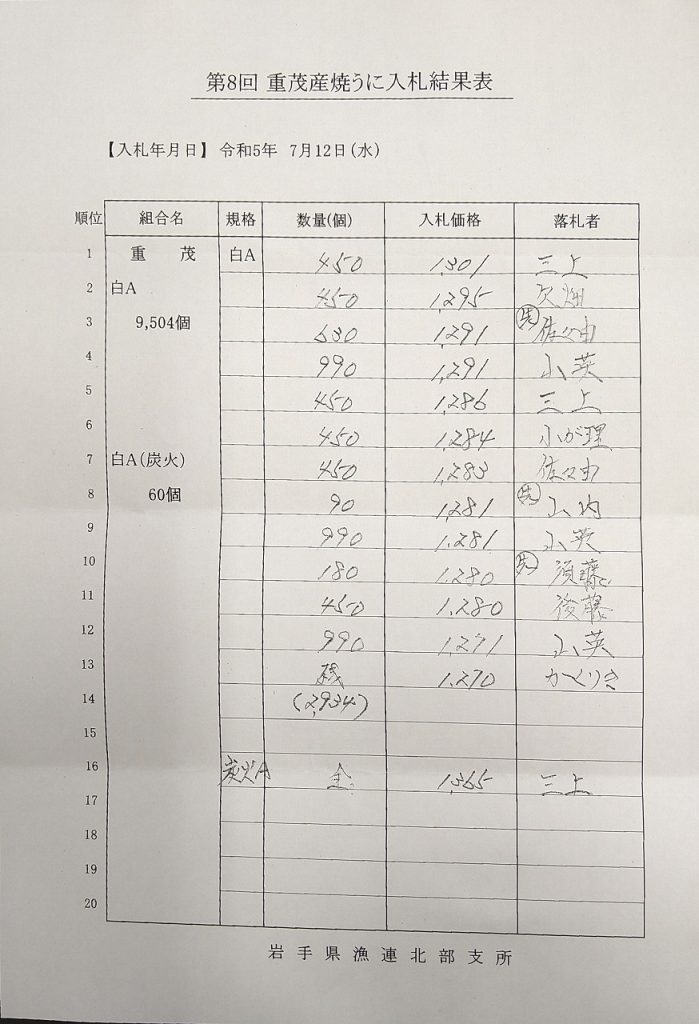 第8回 重茂産焼うに入札結果表
【入札年月日】 令和5年 7月12日(水)
順位 組合名 規格 数量(個) 入札価格 落札者
1 重 茂 白A 450 1,301 三上
2 白A 450 1,295 欠畑
3 9,504個 630 1,291 先 佐々由
4 990 1,291 山英
5 450 1,286 三上
6 450 1,284 小が理
7 白A(炭火) 450 1,283 佐々由
8 60個 90 1,281 先 山内
9 990 1,281 山英
10 180 1,280 先 須藤
11 450 1,280 後藤
12 990 1,271 山英
13 残 1,270 かくりき
14 (2,934)
15
16 炭火A 全 1,365 三上
17
18
19
20
岩手県漁連北部支所